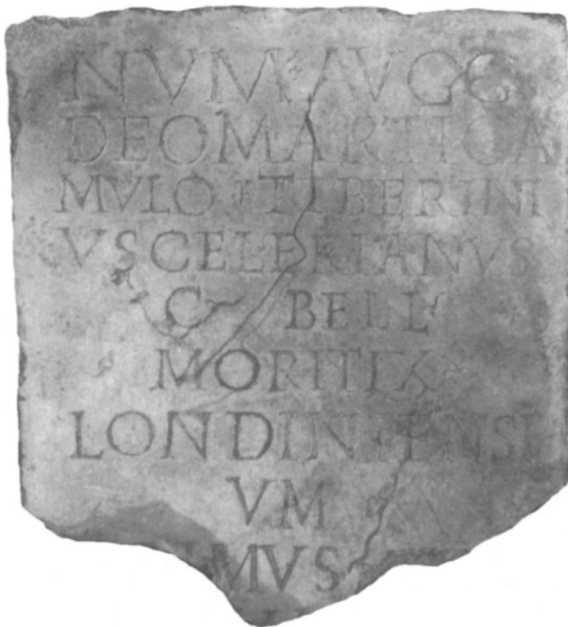 NVM AVGG
DEO MARTI CA
MVLO TIBERINI
VS CELERIANVS
C BELL
MORITIX
LONDINIENSI
VM
MVS